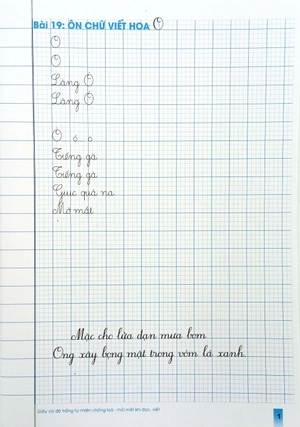 Bài 19: ÔN CHỮ VIẾT HOA O
O
O
Làng O
Làng O
O ó o
Tiếng gà
Tiếng gà
Giục quả na
Mở mắt
Mặc cho lửa đạn mưa bom
Ong xây bọng mật trong vòm lá xanh.
Giấy có độ trắng tự nhiên chống loá - mỏi mắt khi đọc, viết
1